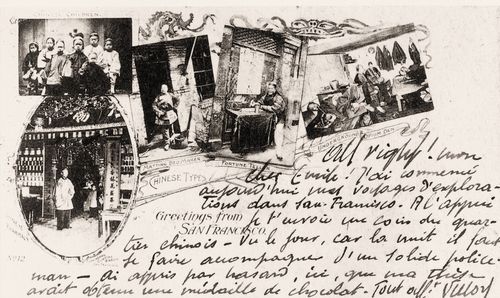 CHINESE CHILDREN.
FORTUNE TELLER
CHINESE TYPES
Greetings from
SAN FRANCISCO.
Nº 12
All right! mon
cher Emile! J'ai commencé
aujourd'hui mes voyages d'explora-
tions dans San-Francisco. A l'appui
je t'envoie un coin du quar-
tier chinois - Vu le jour, car la nuit il faut
se faire accompagner d'un solide police-
man - Ai appris par hasard, ici, que ma thèse
avait obtenu une médaille de chocolat. Tout aff.t